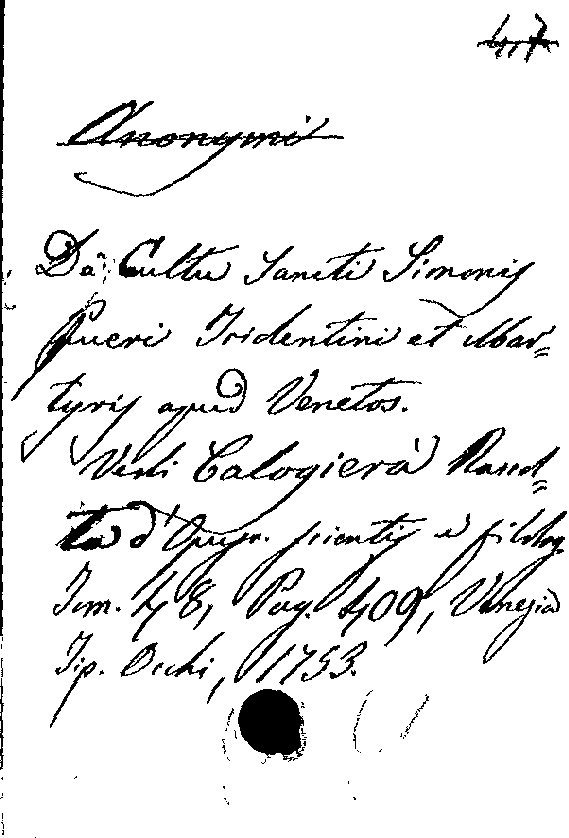 47
Anonymi
De Cultu Sancti Simonis
Pueri Tridentini et Mar=
tyris apud Venetos.
Vedi Calogierà Racol=
ta d'Opusc. scientif e filolog.
Tom. 48, Pag. 409, Venezia
Tip. Occhi, 1753.